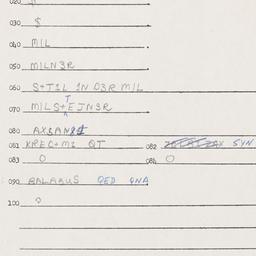 020 $
030 $
040 MIL
050 MILN3R
060 S+T1L 1N D3R MIL
070 MILS+TEJN3R
080
081 KREC+M3 QT 082 SYN
083 O 084 O
090 BALAKUS QED QNA
100 O